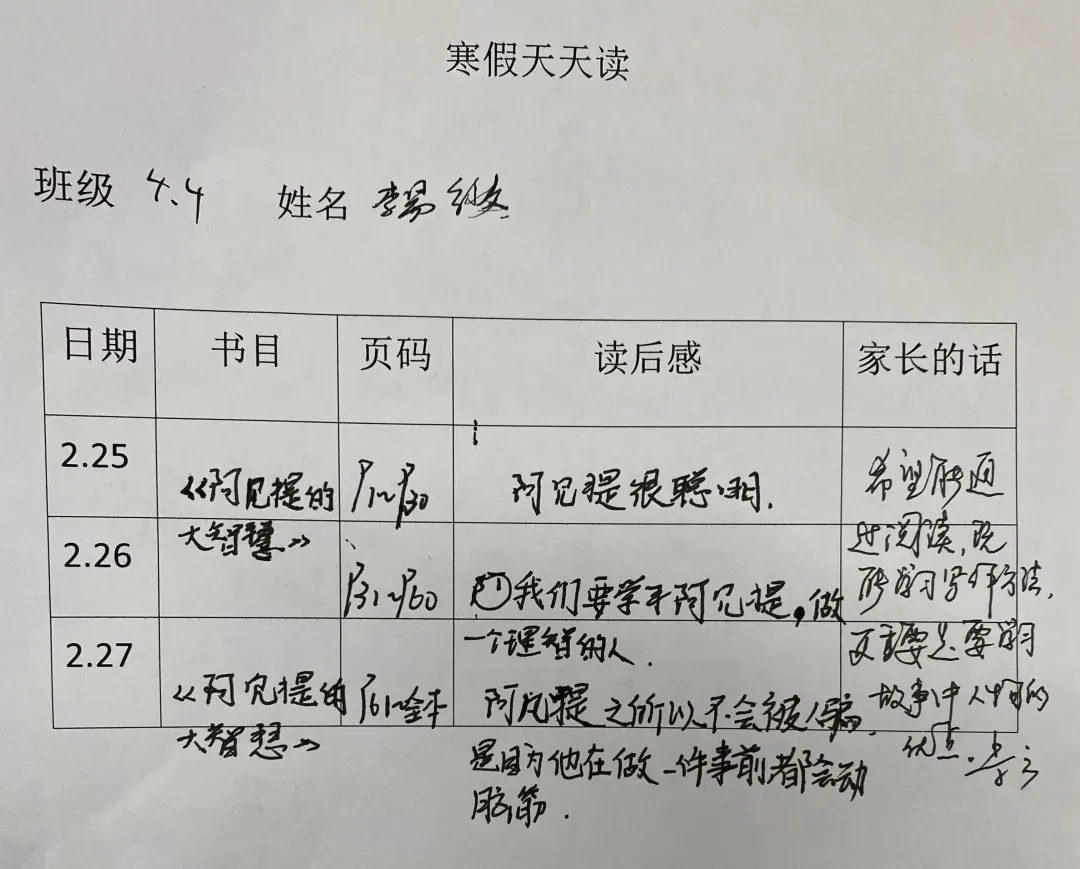 寒假天天读
班级 4.4 姓名 李易
日期 书目 页码 读后感 家长的话
2.25
《阿凡提的
大智慧》
P1~P30
阿凡提很聪明.
2.26
P31~P60
我们要学习阿凡提,做
一个理智的人.
2.27
《阿凡提的
大智慧》
P61~全本
阿凡提之所以不会被人骗,
是因为他在做一件事前都会动
脑筋.
希望能通
过阅读,既
能学习写作方法,
更主要是要学习
故事中人物的
优点.